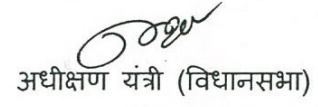 अधीक्षण यंत्री (विधानसभा)